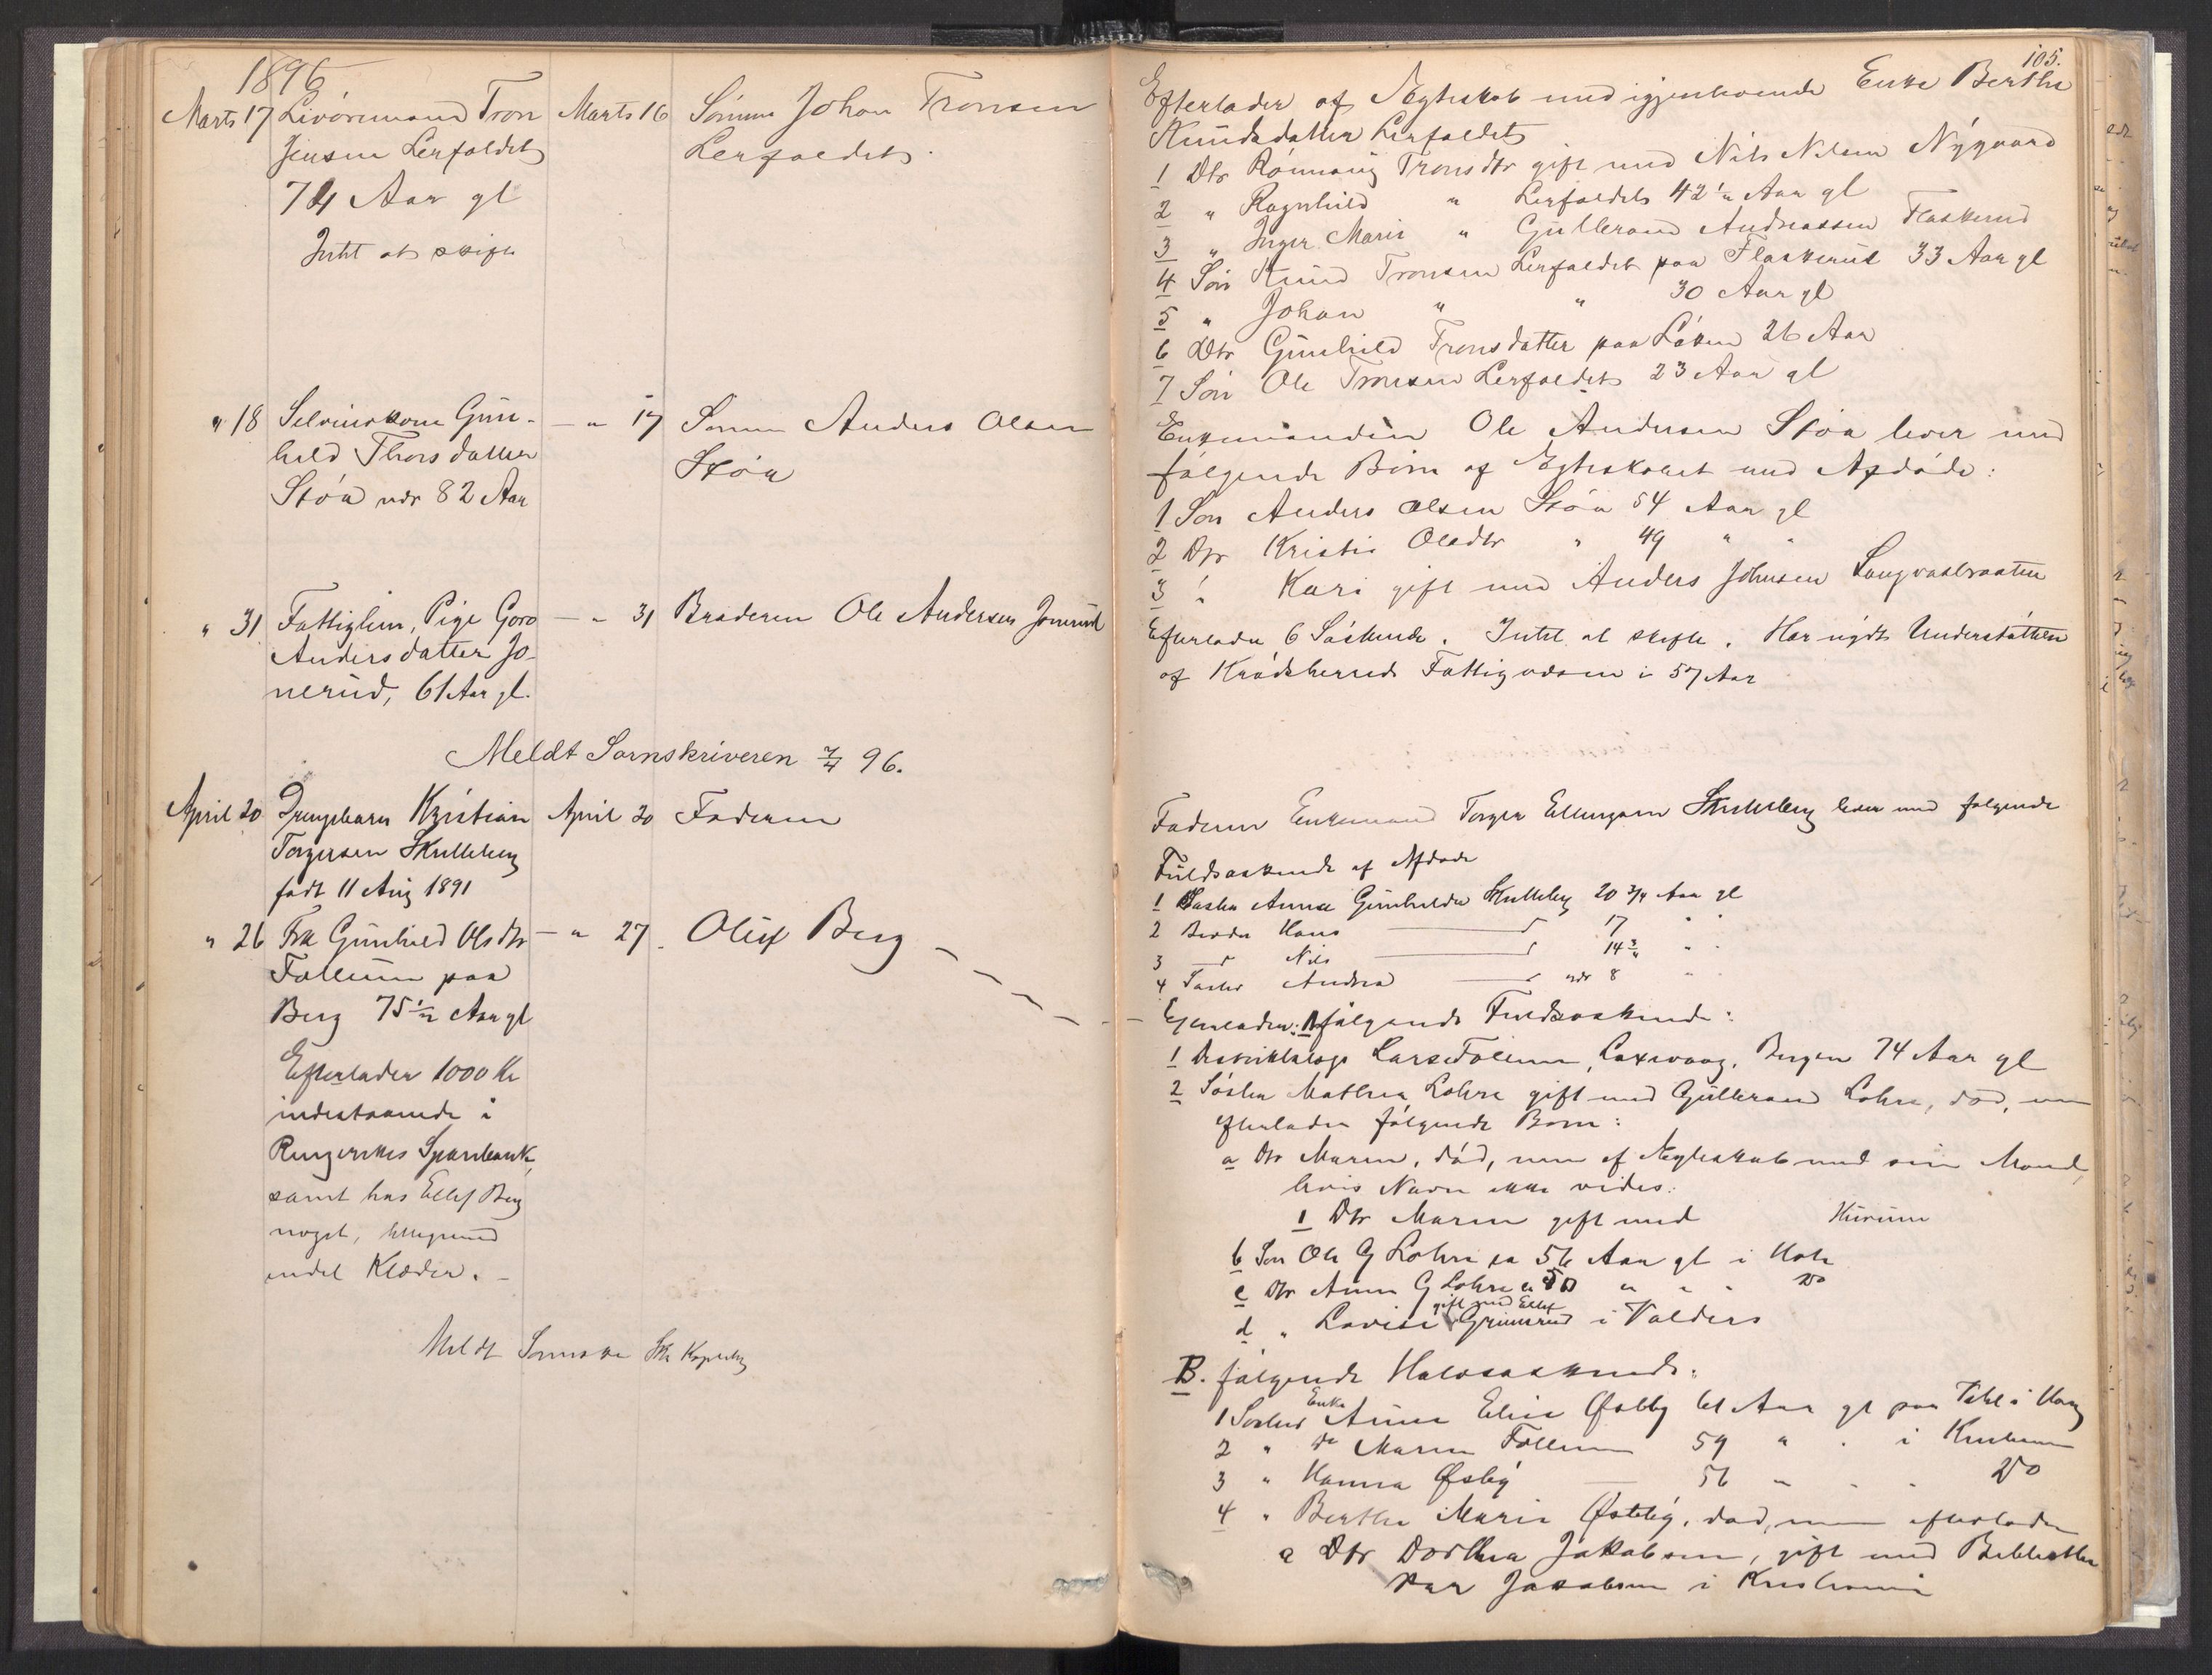 1896
Marts 17 Livöremand Tron Marts 16 Sønnen Johan Tronsen
Jensen Lerfaldet Lerfaldet.
74 Aar gl
Intet at skifte
" 18 Selveierkone Gun- — " 17 Sønnen Anders Olsen
hild Thorsdatter Stöa
Stöa ndr 82 Aar
" 31 Fattiglem, Pige Goro — " 31 Broderen Ole Andersen Jonerud
Andersdatter Jo-
nerud, 61 Aar gl.
Meldt Sornskriveren 7/4 96.
April 20 Drengebarn Kristian April 20 Faderen
Torgersen Skulleberg
født 11 Aug 1891
" 26 Frk Gunhild Olsdtr — " 27. Oluf Berg
Follum paa
Berg 75 1/2 Aar gl
Efterlader 1000 Kr
indestaaende i
Ringerikes Sparebank,
samt hos Ellef Berg
noget,
endel Klæder. –
Meldt
105.
Efterlader af Ægteskab med igjenlevende Enke Berthe
Knudsdatter Lerfaldet
1 Dtr Rønnaug Tronsdtr gift med Nils Nilsen Nygaard
2 " Ragnhild " Lerfaldet 42 1/2 Aar gl
3 " Inger Marie " Gulbrand Andreassen Flaskerud
4 Søn Knud Tronsen Lerfaldet paa Flaskerud 33 Aar gl
5 " Johan " " 30 Aar gl
6 Dtr Gunhild Tronsdatter paa Løken 26 Aar
7 Søn Ole Tronsen Lerfaldet 23 Aar gl
Enkemanden Ole Andersen Stöa lever med
følgende Børn af Egteskabet med Afdøde:
1 Søn Anders Olsen Stöa 54 Aar gl
2 Dtr Kristi Olsdtr " 49 " "
3 " Kari gift med Anders Johnsen Langvasbraaten
Efterlader 6 Søskende. Intet at skifte. Har nydt Understøttelse
af Krødsherreds Fattigvæsen i 57 Aar
Faderen Enkemand Torger Ellingsen Skulleberg lever med følgende
Fuldsøskende af Afdøde
1 Søster Anne Gunhilda Skulleberg 20 3/4 Aar gl
2 Broder Hans — 17 " "
3 — Nils — 14 3/4 " "
4 Søster Andrea — ndr 8 "
Efterlader: A følgende Fuldsøskende:
1 Distriktslæge Lars Follum, Laxevaag, Bergen 74 Aar gl
2 Søster Mathea Lohre gift med Gulbrand Lohre, død, men
efterlader følgende Børn:
a Dtr Maren, død, men af Ægteskab med sin Mand,
hvis Navn ikke vides:
1 Dtr Maren gift med Hurum
b Søn Ole G Lohre ca 56 Aar gl i Hole
c Dtr Anne G Lohre ca 50 " " " Do
gift med Ellef
d " Lovise Grimsrud i Valders
B. følgende Halvsøskende:
Enke
1 Søster Anne Elise Østby 61 Aar gl paa
2 " do Maren Follum 59 " " i
3 " Hanna Østby — 56 " " " Do
4 " Berthe Marie Østby, død, men efterlader
a Dtr Dorthea Jakobsen, gift med
Jakobsen i Kristiania